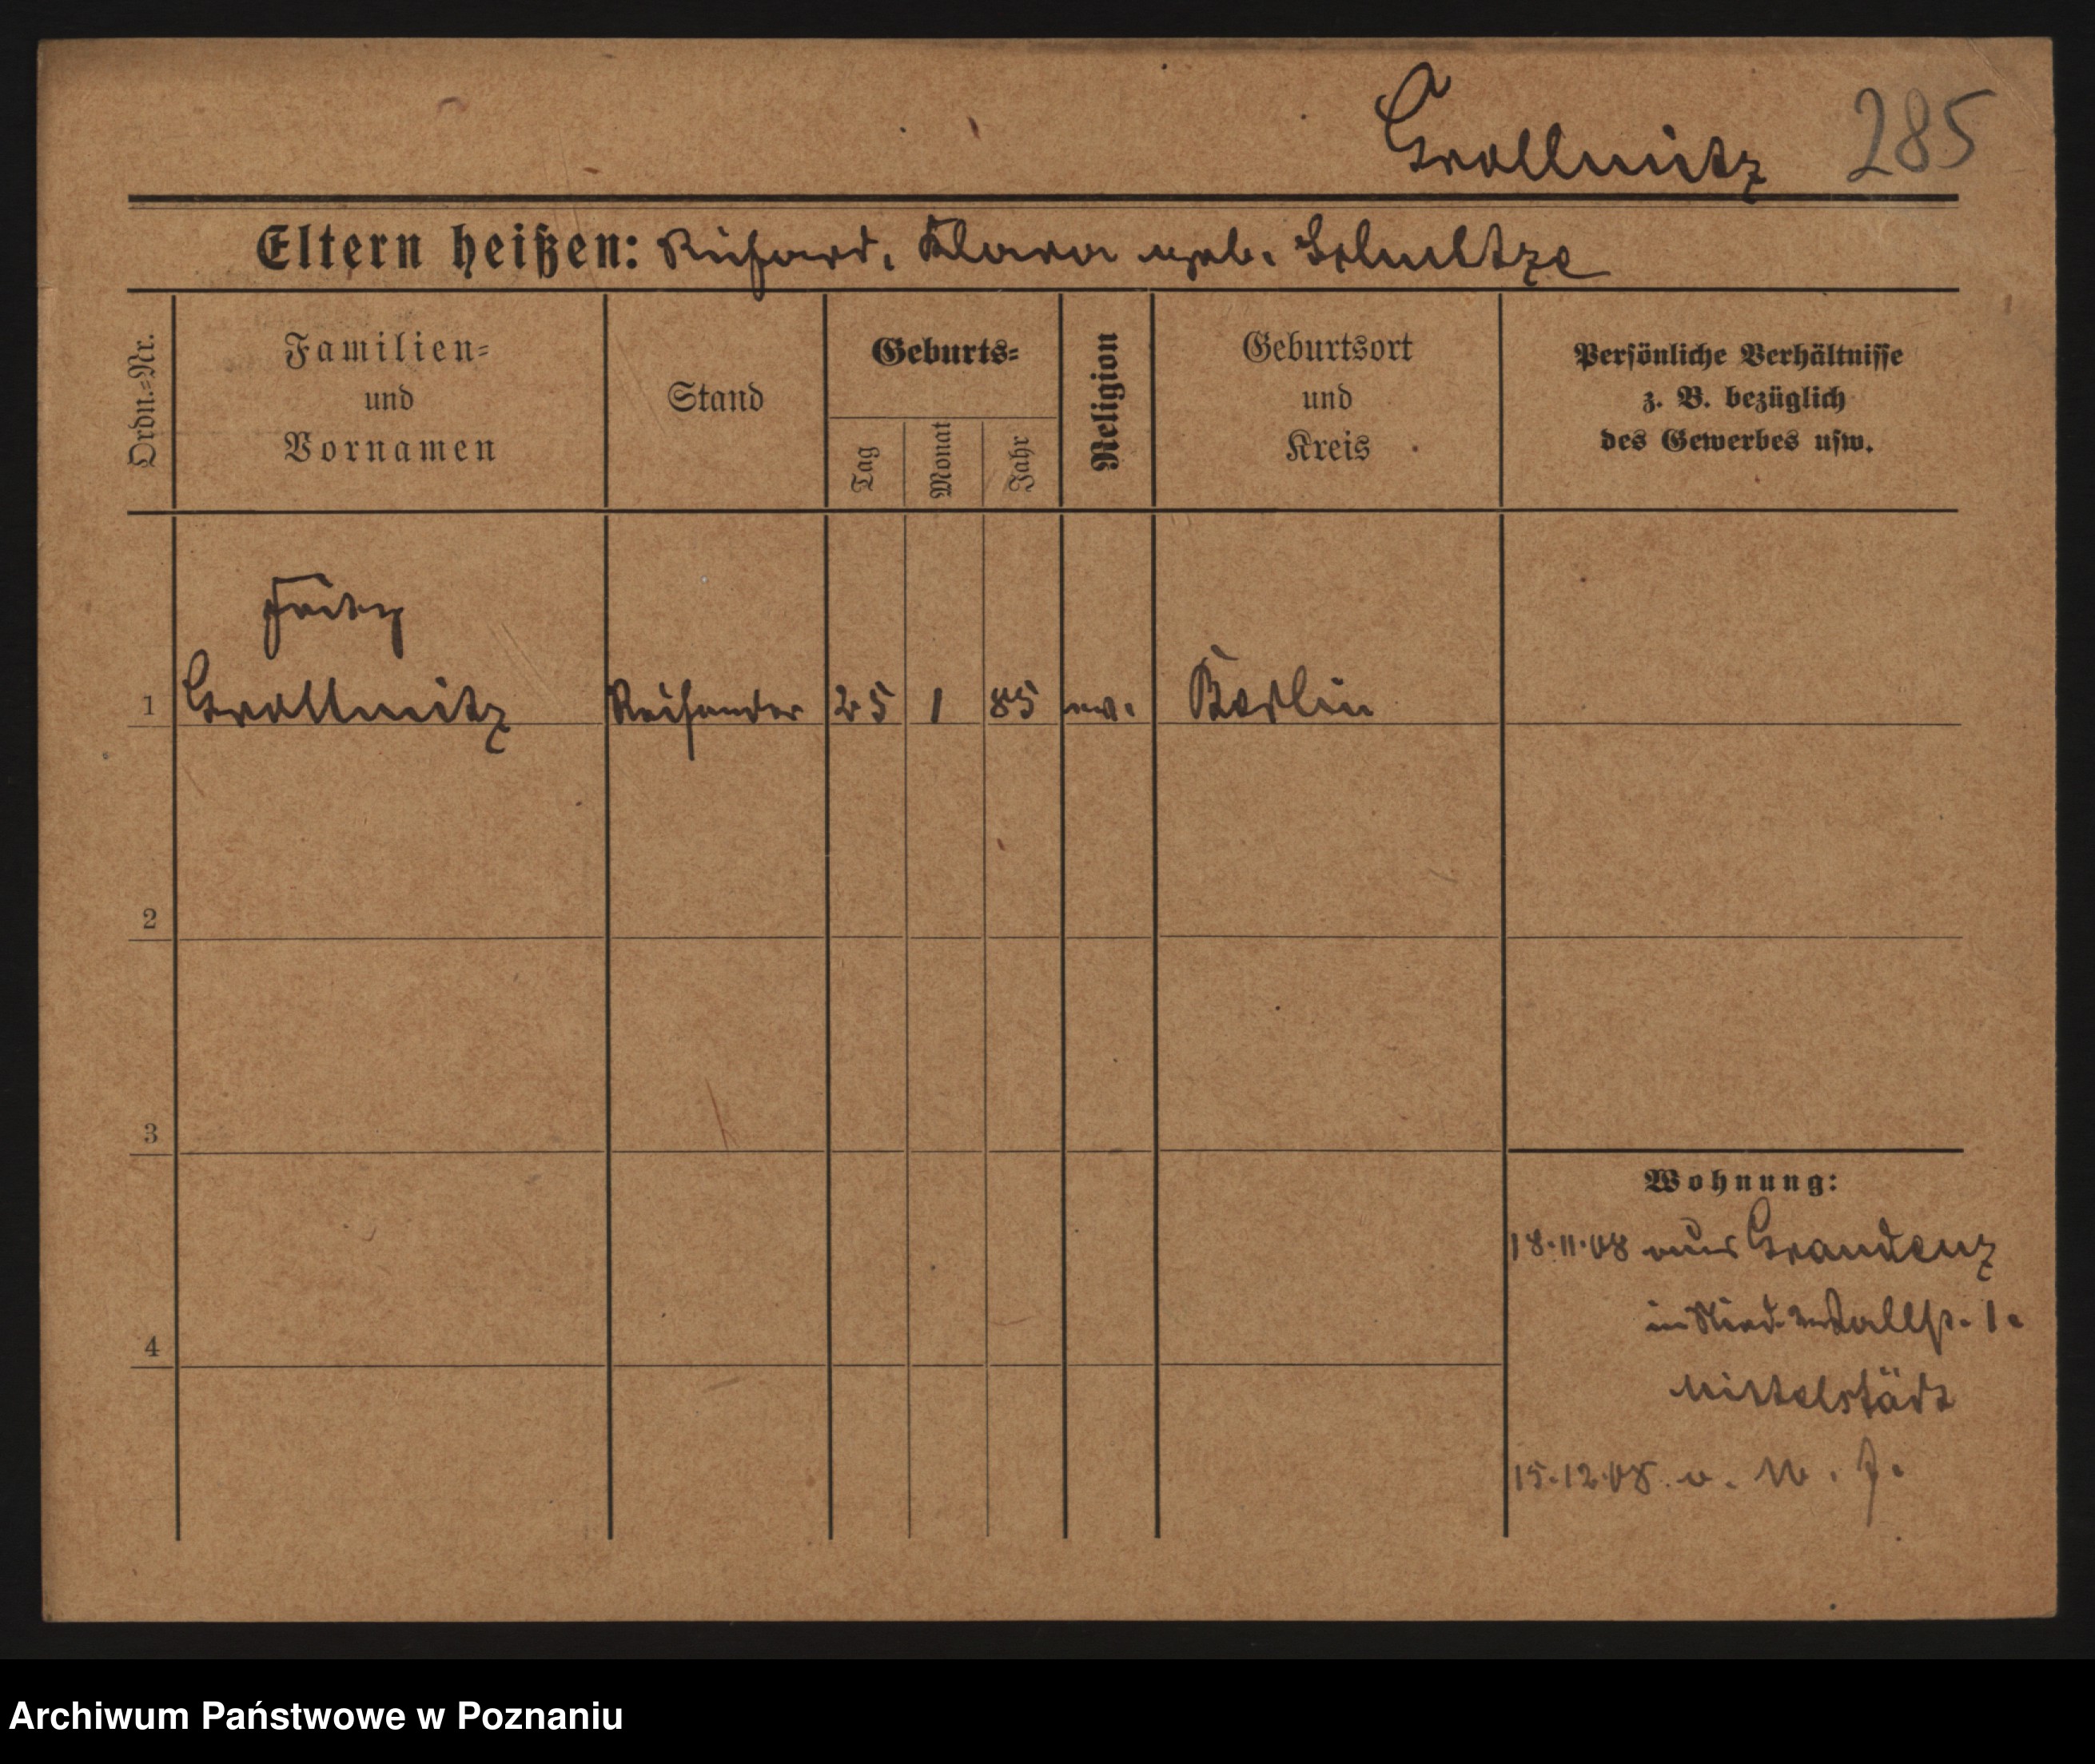 Grollmitz 285
Eltern heißen: Richard, Klara geb. Schultze
Ordn.=Nr.
Familien=
und
Vornamen
Stand
Geburts=
Tag
Monat
Jahr
Religion
Geburtsort
und
Kreis
Persönliche Verhältnisse
z. B. bezüglich
des Gewerbes usw.
Fritz
1 Grollmitz Reisender 25 1 85 ev. Berlin
2
3
4
Wohnung:
18.11.08 aus Graudenz
in 1.
Mittelstädt
15.12.08.
Archiwum Państwowe w Poznaniu